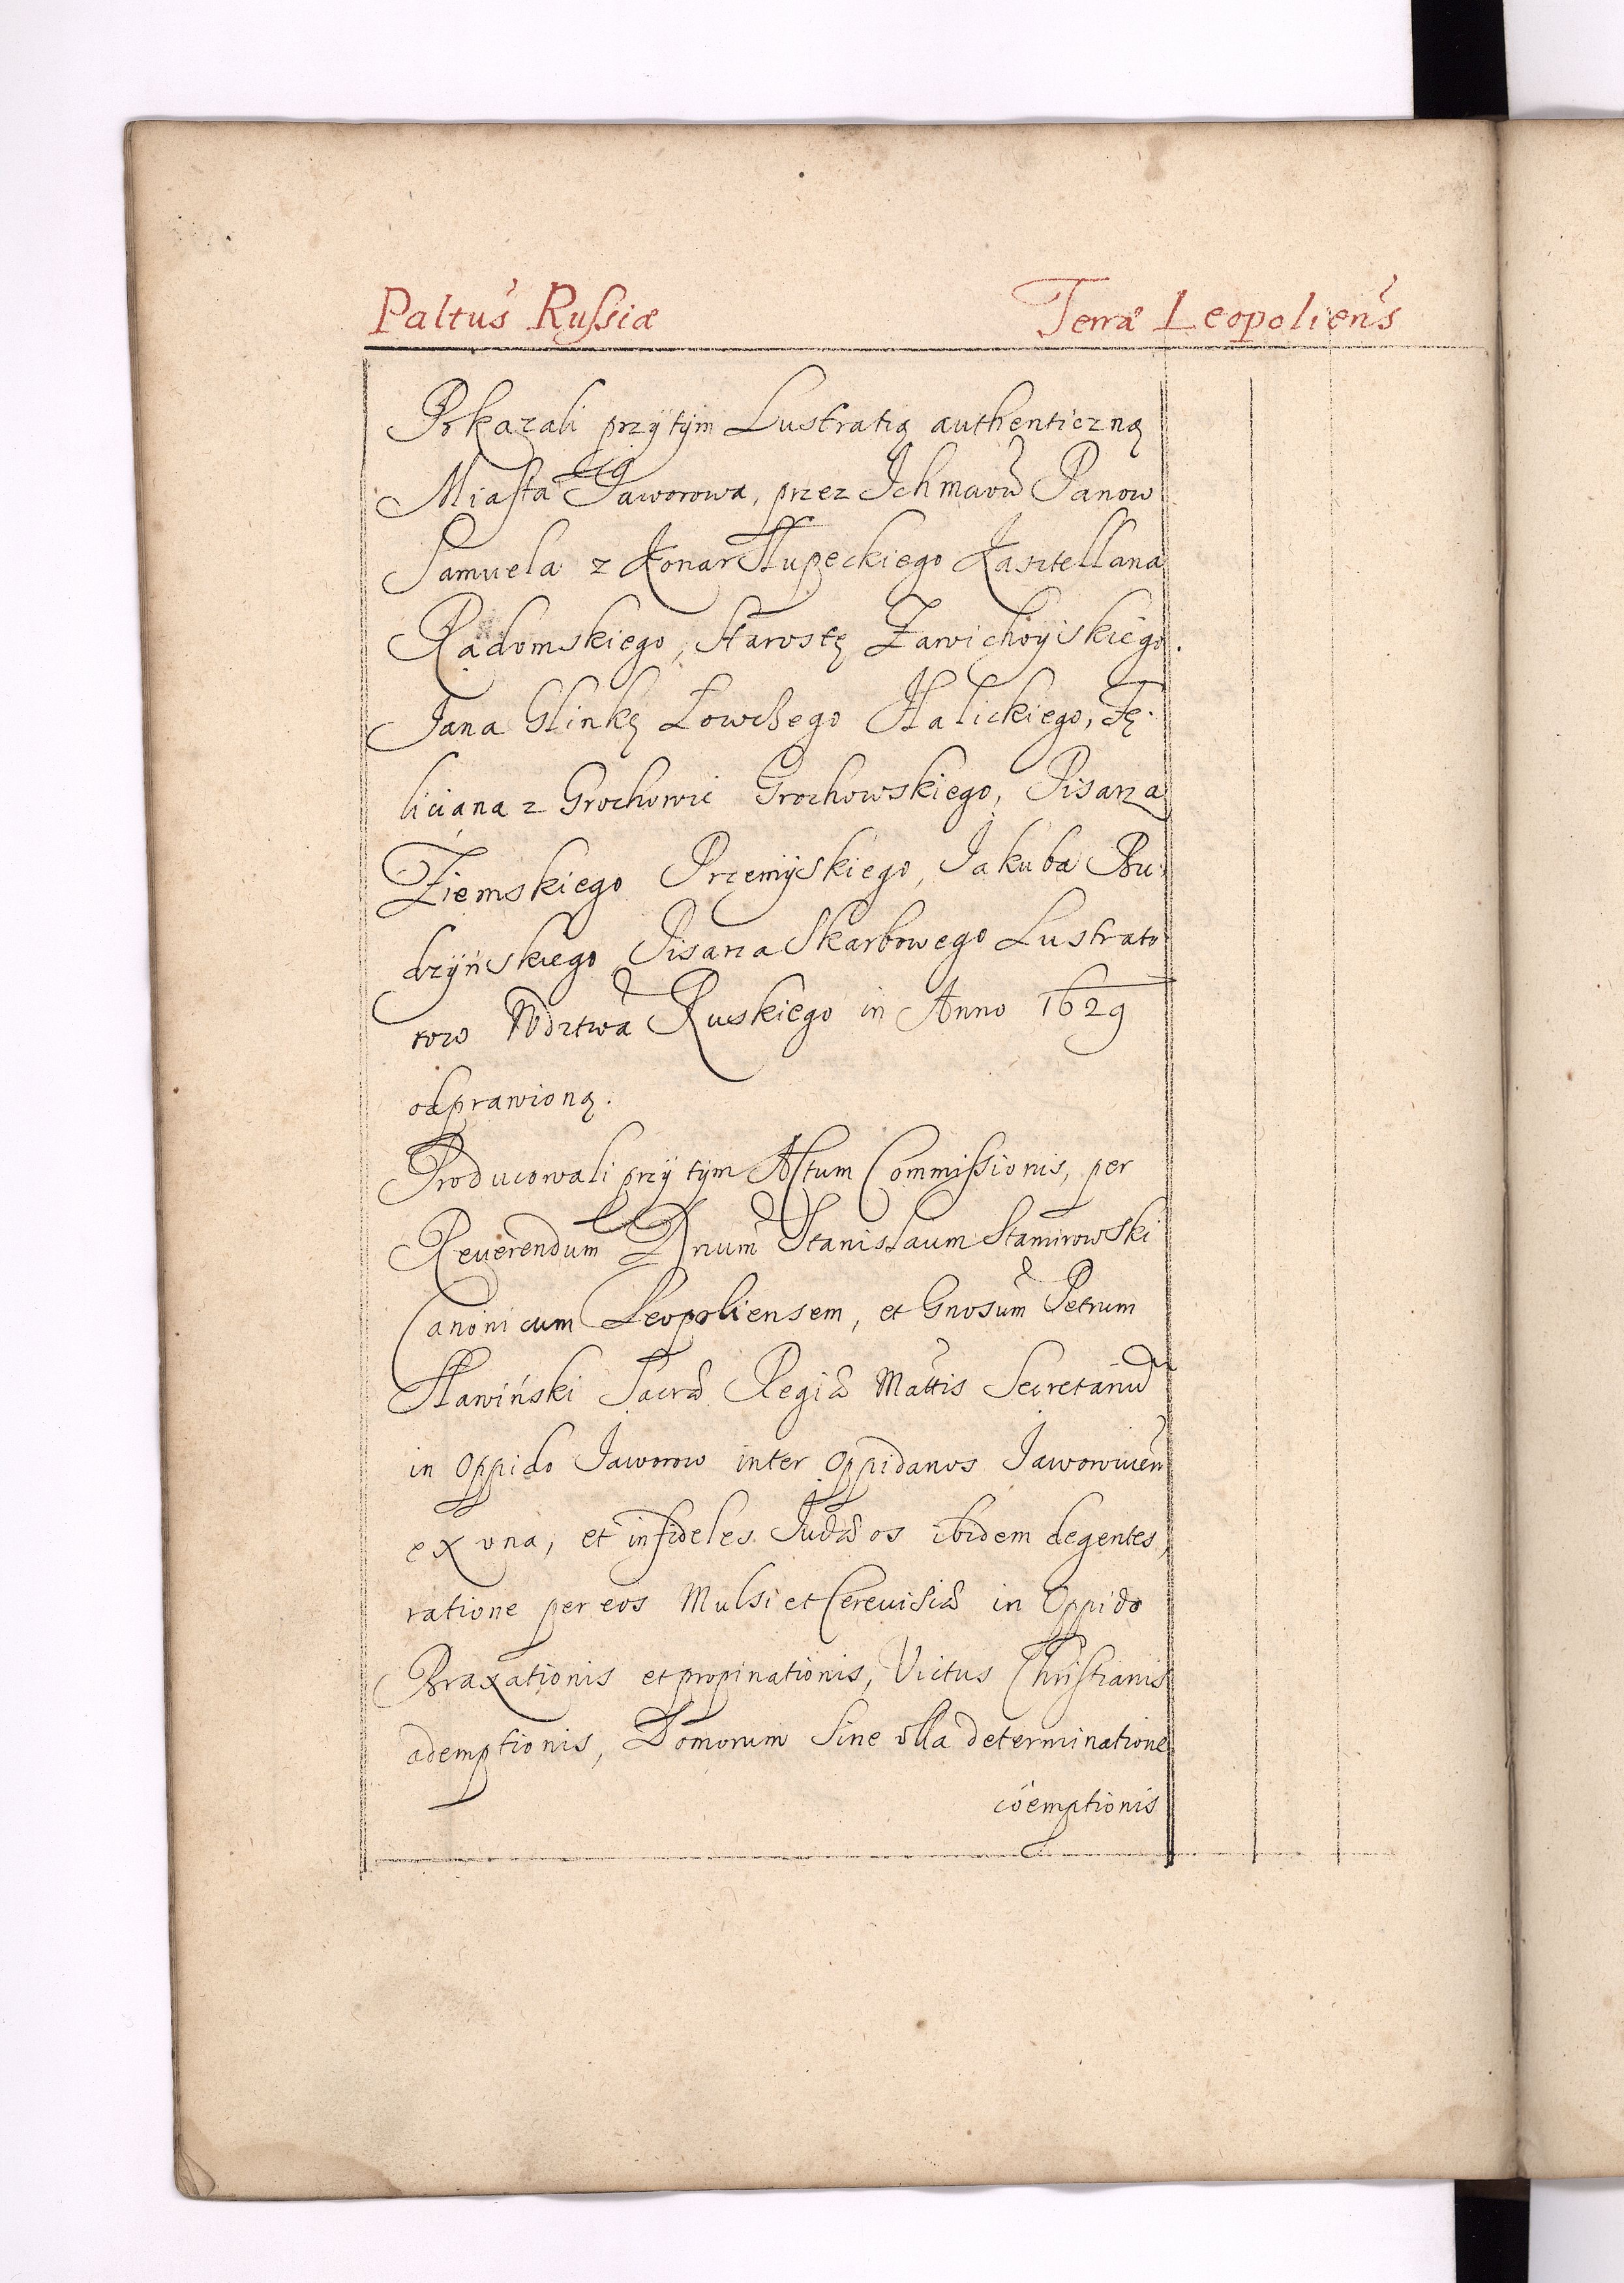 Paltus Russiæ Terræ Leopoliens
Pokazali przytym Lustratią authenticzną
Miasta Jaworowa, przez Ichmciow Panow
Samuela z Konar Słupeckiego Kasztellana
Radomskiego, Starostę Zawichoyskiego.
Jana Glinkę Łowczego Halickiego, Fę-
liciana z Grochowic Grochowskiego, Pisarza
Ziemskiego Przemyskiego, Jakuba Bu-
dzyńskiego Pisarza Skarbowego Lustrato
row Wdztwa Ruskiego in Anno 1629
odprawioną.
Producowali przy tym Actum Commissionis, per
Reuerendum Dnum Stanislaum Stamirowski
Canonicum Leopoliensem, et Gnosum Petrum
Ławiński Sacræ Regiæ Mattis Secretariū
in Oppido Jaworow inter Oppidanos Jaworouien
ex vna, et infideles Judæos ibidem degentes,
ratione per eos Mulsi et Cereuisiæ in Oppido
Braxationis et propinationis, Victus Christianis
ademptionis, Domorum sine vlla determinatione
coëmptionis